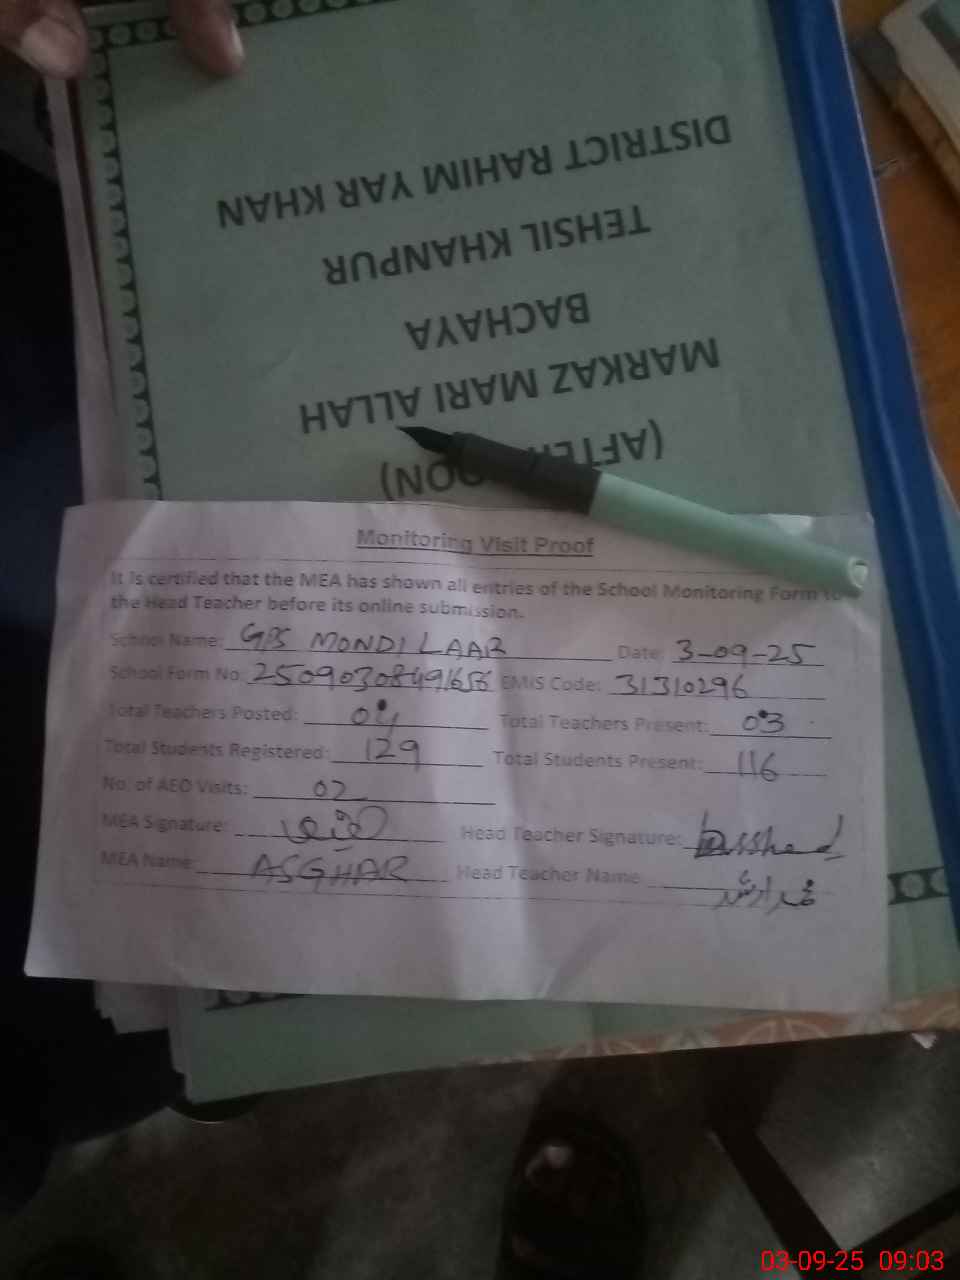 DISTRICT RAHIM YAR KHAN
TEHSIL KHANPUR
BACHAYA
MARKAZ MARI ALLAH
Monitoring Visit Proof
It is certified that the MEA has shown all entries of the School Monitoring Form to
the Head Teacher before its online submission.
School Name: GPS MONDI LAAR Date: 3-09-25
School Form No: EMIS Code: 31310296
Total Teachers Posted: 04 Total Teachers Present: 03
Total Students Registered: 129 Total Students Present: 116
No. of AEO Visits: 02
MEA Signature: Head Teacher Signature:
MEA Name: ASGHAR Head Teacher Name
03-09-25 09:03